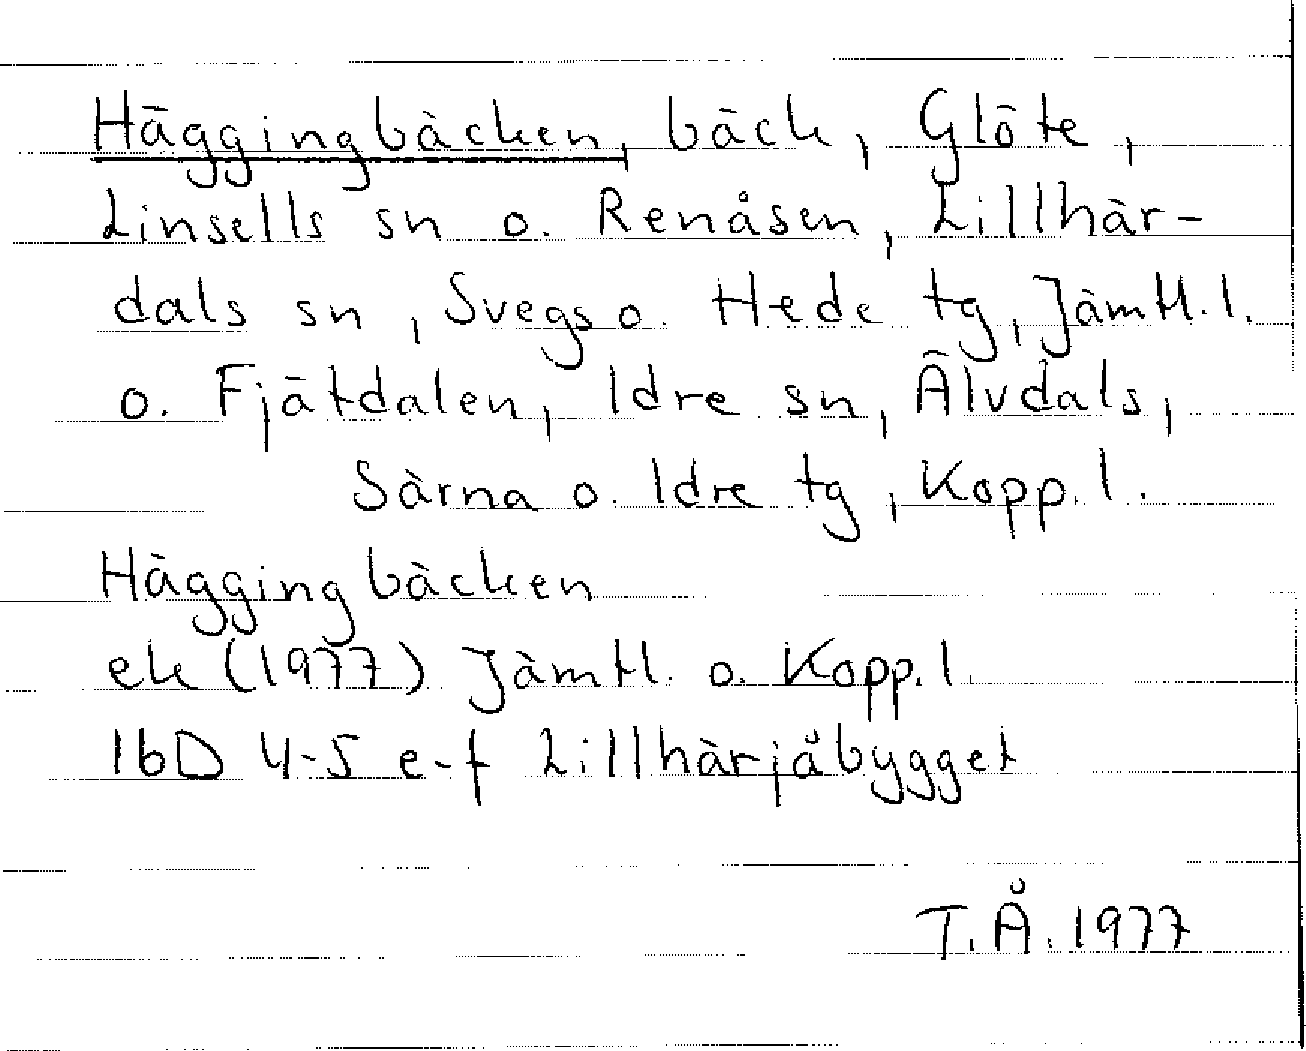 Häggingbäcken, bäck, Glöte,
Linsells sn o. Renåsen, Lillhär-
dals sn, Svegs o. Hede tg, Jämtl. l.
o. Fjätdalen, Idre sn, Älvdals,
Särna o. Idre tg, Kopp. l.
Häggingbäcken
ek (1977) Jämtl. o. Kopp. l.
16D 4-5 e-f Lillhärjåbygget
T.Å. 1977